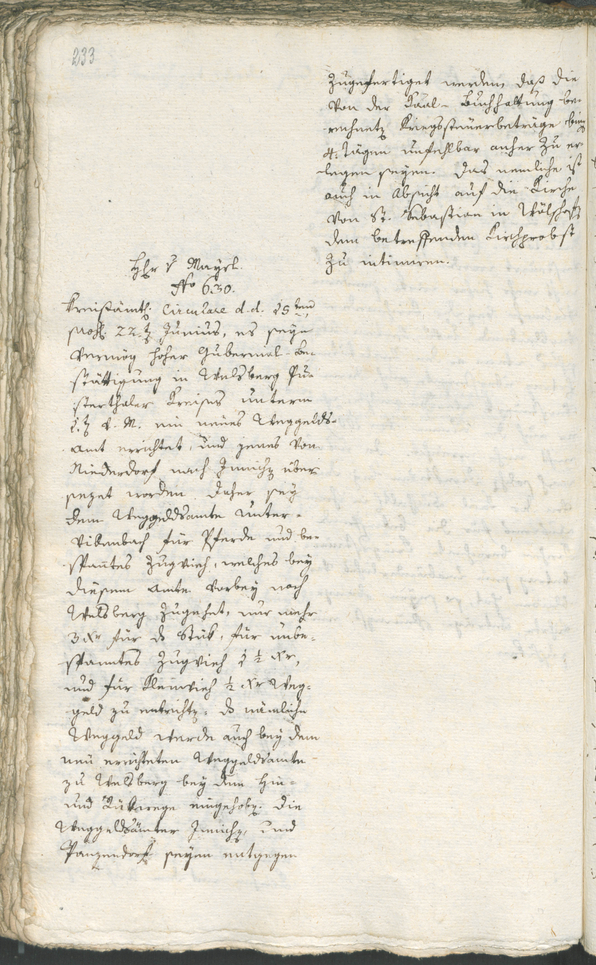 233
zugefertiget werden, daß die
von der Kaal-Buchhaltung be-
rechnete Kriegssteuerbeträge
4. Tägen unfehlbar anher zu er
legen seyen. Das nemliche ist
auch in Absicht auf die Kirche
von St. Sebastian in
dem betreffenden Kirchprobst
zu intimiren.
No 630.
Kreisämtl. Circulare d. d. 15ten
22. Junius, es seye
vermög hoher Gubernial-Be-
stättigung in Welsberg Pu-
sterthaler Kreises unterm
d. M. ein neues Weggelds-
amt errichtet, und jenes von
Niederdorf nach Innich über
sezet worden. Daher sey
dem Weggeldsamte Unter-
Vilanbach für Pferde und be-
spantes Zugvieh, welches bey
diesem Amte vorbey nach
Welsberg zugehet, nur mehr
3 Xr für d Stük, für unbe-
spanntes Zugvieh 1 ½ Xr,
und für Kleinvieh ½ Xr Weg-
geld zu entricht, d nämliche
Weggeld werde auch bey dem
neu errichteten Weggeldsamte
zu Welsberg bey dem Hin-
und Rükwege eingehob. Die
Weggeldsämter Innich, und
Panzendorf seyen entgegen